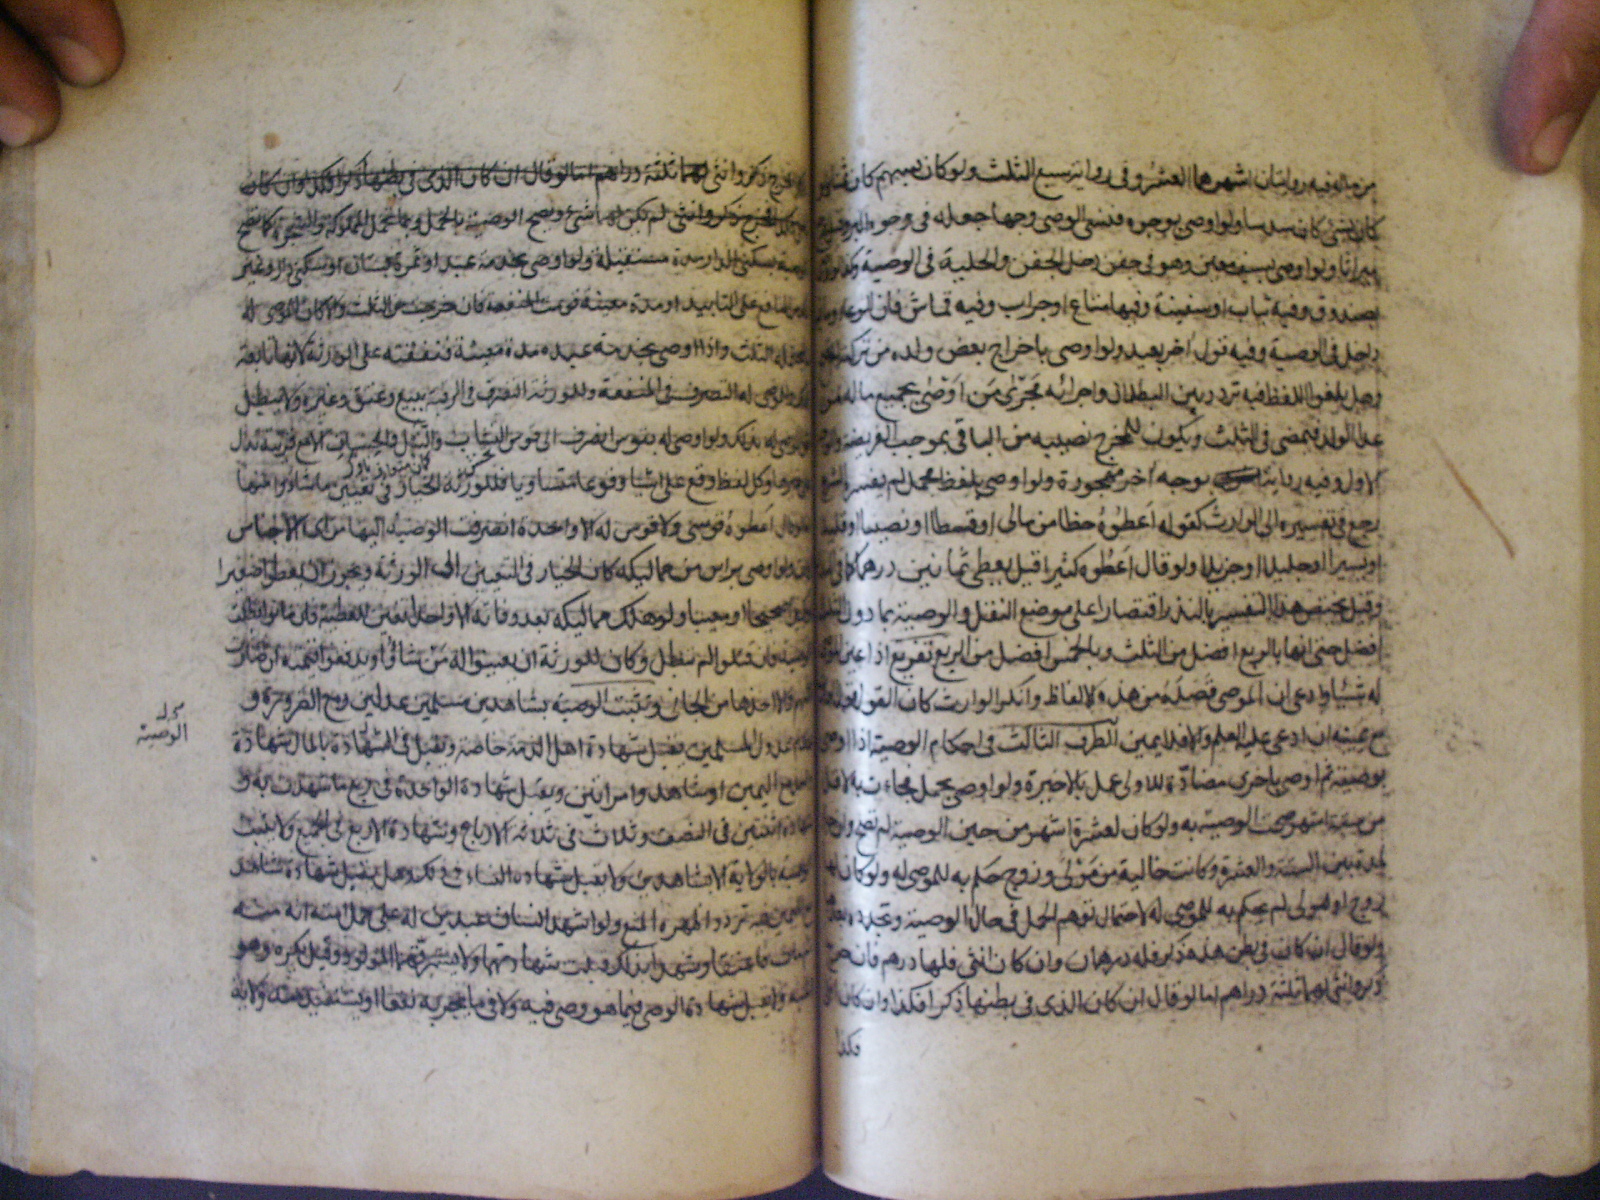 من ماله فيه روايتان اشهرهما العشر وفى رواية سبع الثلث ولو كان بسهم كان ثمنا ولو
كان بشئ كان سدسا ولو اوصى بوجوه فنسى الوصى وجها جعله فى وجوه البر وقيل يرجع
ميراثا ولو اوصى بسيف معين وهو فى جفن دخل الجفن والحلية فى الوصية وكذا لو اوصى
بصندوق وفيه ثياب او سفينة وفيها متاع او جراب وفيه قماش فان الوعاء وما فيه
داخل فى الوصية وفيه قول اخر بعيد ولو اوصى باخراج بعض ولده من تركته لم يصح
وهل يلغو اللفظ فيه تردد بين البطلان واجرائه مجرى من اوصى بجميع ماله لمن
عدا الولد فتمضى فى الثلث ويكون للمخرج نصيبه من الباقى بموجب الفريضة والوجه
الاول وفيه رواية بوجه اخر مهجورة ولو اوصى بلفظ مجمل لم يفسره الشرع
رجع فى تفسيره الى الوارث كقوله اعطوه حظا من مالى او قسطا او نصيبا او قليلا
او يسيرا او جليلا او جزيلا ولو قال اعطوه كثيرا قيل يعطى ثمانين درهما كما فى النذر
وقيل يختص هذا التفسير بالنذر اقتصارا على موضع النقل والوصية بما دون الثلث
افضل حتى انها بالربع افضل من الثلث وبالخمس افضل من الربع تفريع اذا عين الموصى
له شيئا وادعى ان الموصى قصده من هذه الالفاظ وانكر الوارث كان القول قول الوارث
مع يمينه ان ادعى عليه العلم والا فلا يمين الطرف الثالث فى احكام الوصية اذا اوصى
بوصية ثم اوصى باخرى مضادة للاولى عمل بالاخيرة ولو اوصى بحمل فجاءت به لاقل
من ستة اشهر صحت الوصية به ولو كان لعشرة اشهر من حين الوصية لم تصح وان جاءت
لمدة بين الستة والعشرة وكانت خالية من مولى وزوج حكم به للموصى له ولو كان لها
زوج او مولى لم يحكم به للموصى له لاحتمال توهم الحمل فى حال الوصية وتجدده بعدها
ولو قال ان كان فى بطن هذه ذكر فله درهمان وان كان انثى فلها درهم فان خرج
ذكر وانثى لهما ثلثة دراهم اما لو قال ان كان الذى فى بطنها ذكرا فكذا وان كان انثى
فكذا
خرج ذكر وانثى لهما ثلثة دراهم اما لو قال ان كان الذى فى بطنها ذكرا فكذا وان كان
فكذا فخرج ذكر وانثى لم يكن لهما شئ وتصح الوصية بالحمل وبما تحمل المملوكة والشجرة كما تصح
الوصية بسكنى الدار مدة مستقبلة ولو اوصى بخدمة عبد او ثمرة بستان او سكنى دار وغير
ذلك من المنافع على التابيد او مدة معينة قومت المنفعة فان خرجت من الثلث والا كان للموصى له
ما يحتمله الثلث واذا اوصى بخدمة عبده مدة معينة فنفقته على الورثة لانها تابعة
للملك وللموصى له التصرف فى المنفعة وللورثة التصرف فى الرقبة ببيع وعتق وغيره ولا يبطل
حق الموصى له بذلك ولو اوصى له بقوس انصرف الى قوس النشاب والنبل والحسبان الا مع قرينة تدل
على غيرها وكل لفظ وقع على اشيا وقوعا متساويا فللورثة الخيار فى تعيين ما شاؤا منها
اما لو قال اعطوه قوسى ولا قوس له الا واحدة انصرفت الوصية اليها من اى الاجناس
كانت ولو اوصى براس من مماليكه كان الخيار فى التعيين الى الورثة ويجوز ان يعطوا صغيرا
او كبيرا صحيحا او معيبا ولو هلك مماليكه بعد وفاته الا واحدا تعين للعطية فان ماتوا بطلت
الوصية فان قتلوا لم تبطل وكان للورثة ان يعينوا له من شاؤا او يدفعوا قيمته ان صارت
اليهم والا اخذها من الجانى وتثبت الوصية بشاهدين مسلمين عدلين ومع الضرورة و
عدم عدول المسلمين يقبل شهادة اهل الذمة خاصة ويقبل فى الشهادة بالمال شهادة
واحد مع اليمين او شاهد وامراتين ويقبل شهادة الواحدة فى ربع ما شهدت به و
شهادة اثنتين فى النصف وثلاث فى ثلاثة الارباع وشهادة الاربع فى الجميع ولا يثبت
الوصية بالولاية الا بشاهدين ولا يقبل شهادة النساء فى ذلك وهل يقبل شهادة شاهد
مع اليمين فيه تردد اظهره المنع ولو اشهد انسان عبدين له على حمل امته انه منه
ثم مات فاعتقا وشهدا بذلك قبلت شهادتهما ولا يسترقهما المولود وقيل يكره وهو
اشبه ولا يقبل شهادة الوصى فيما هو وصى فيه ولا فى ما يجر به نفعا او يستفيد منه ولاية
محل
الوصية